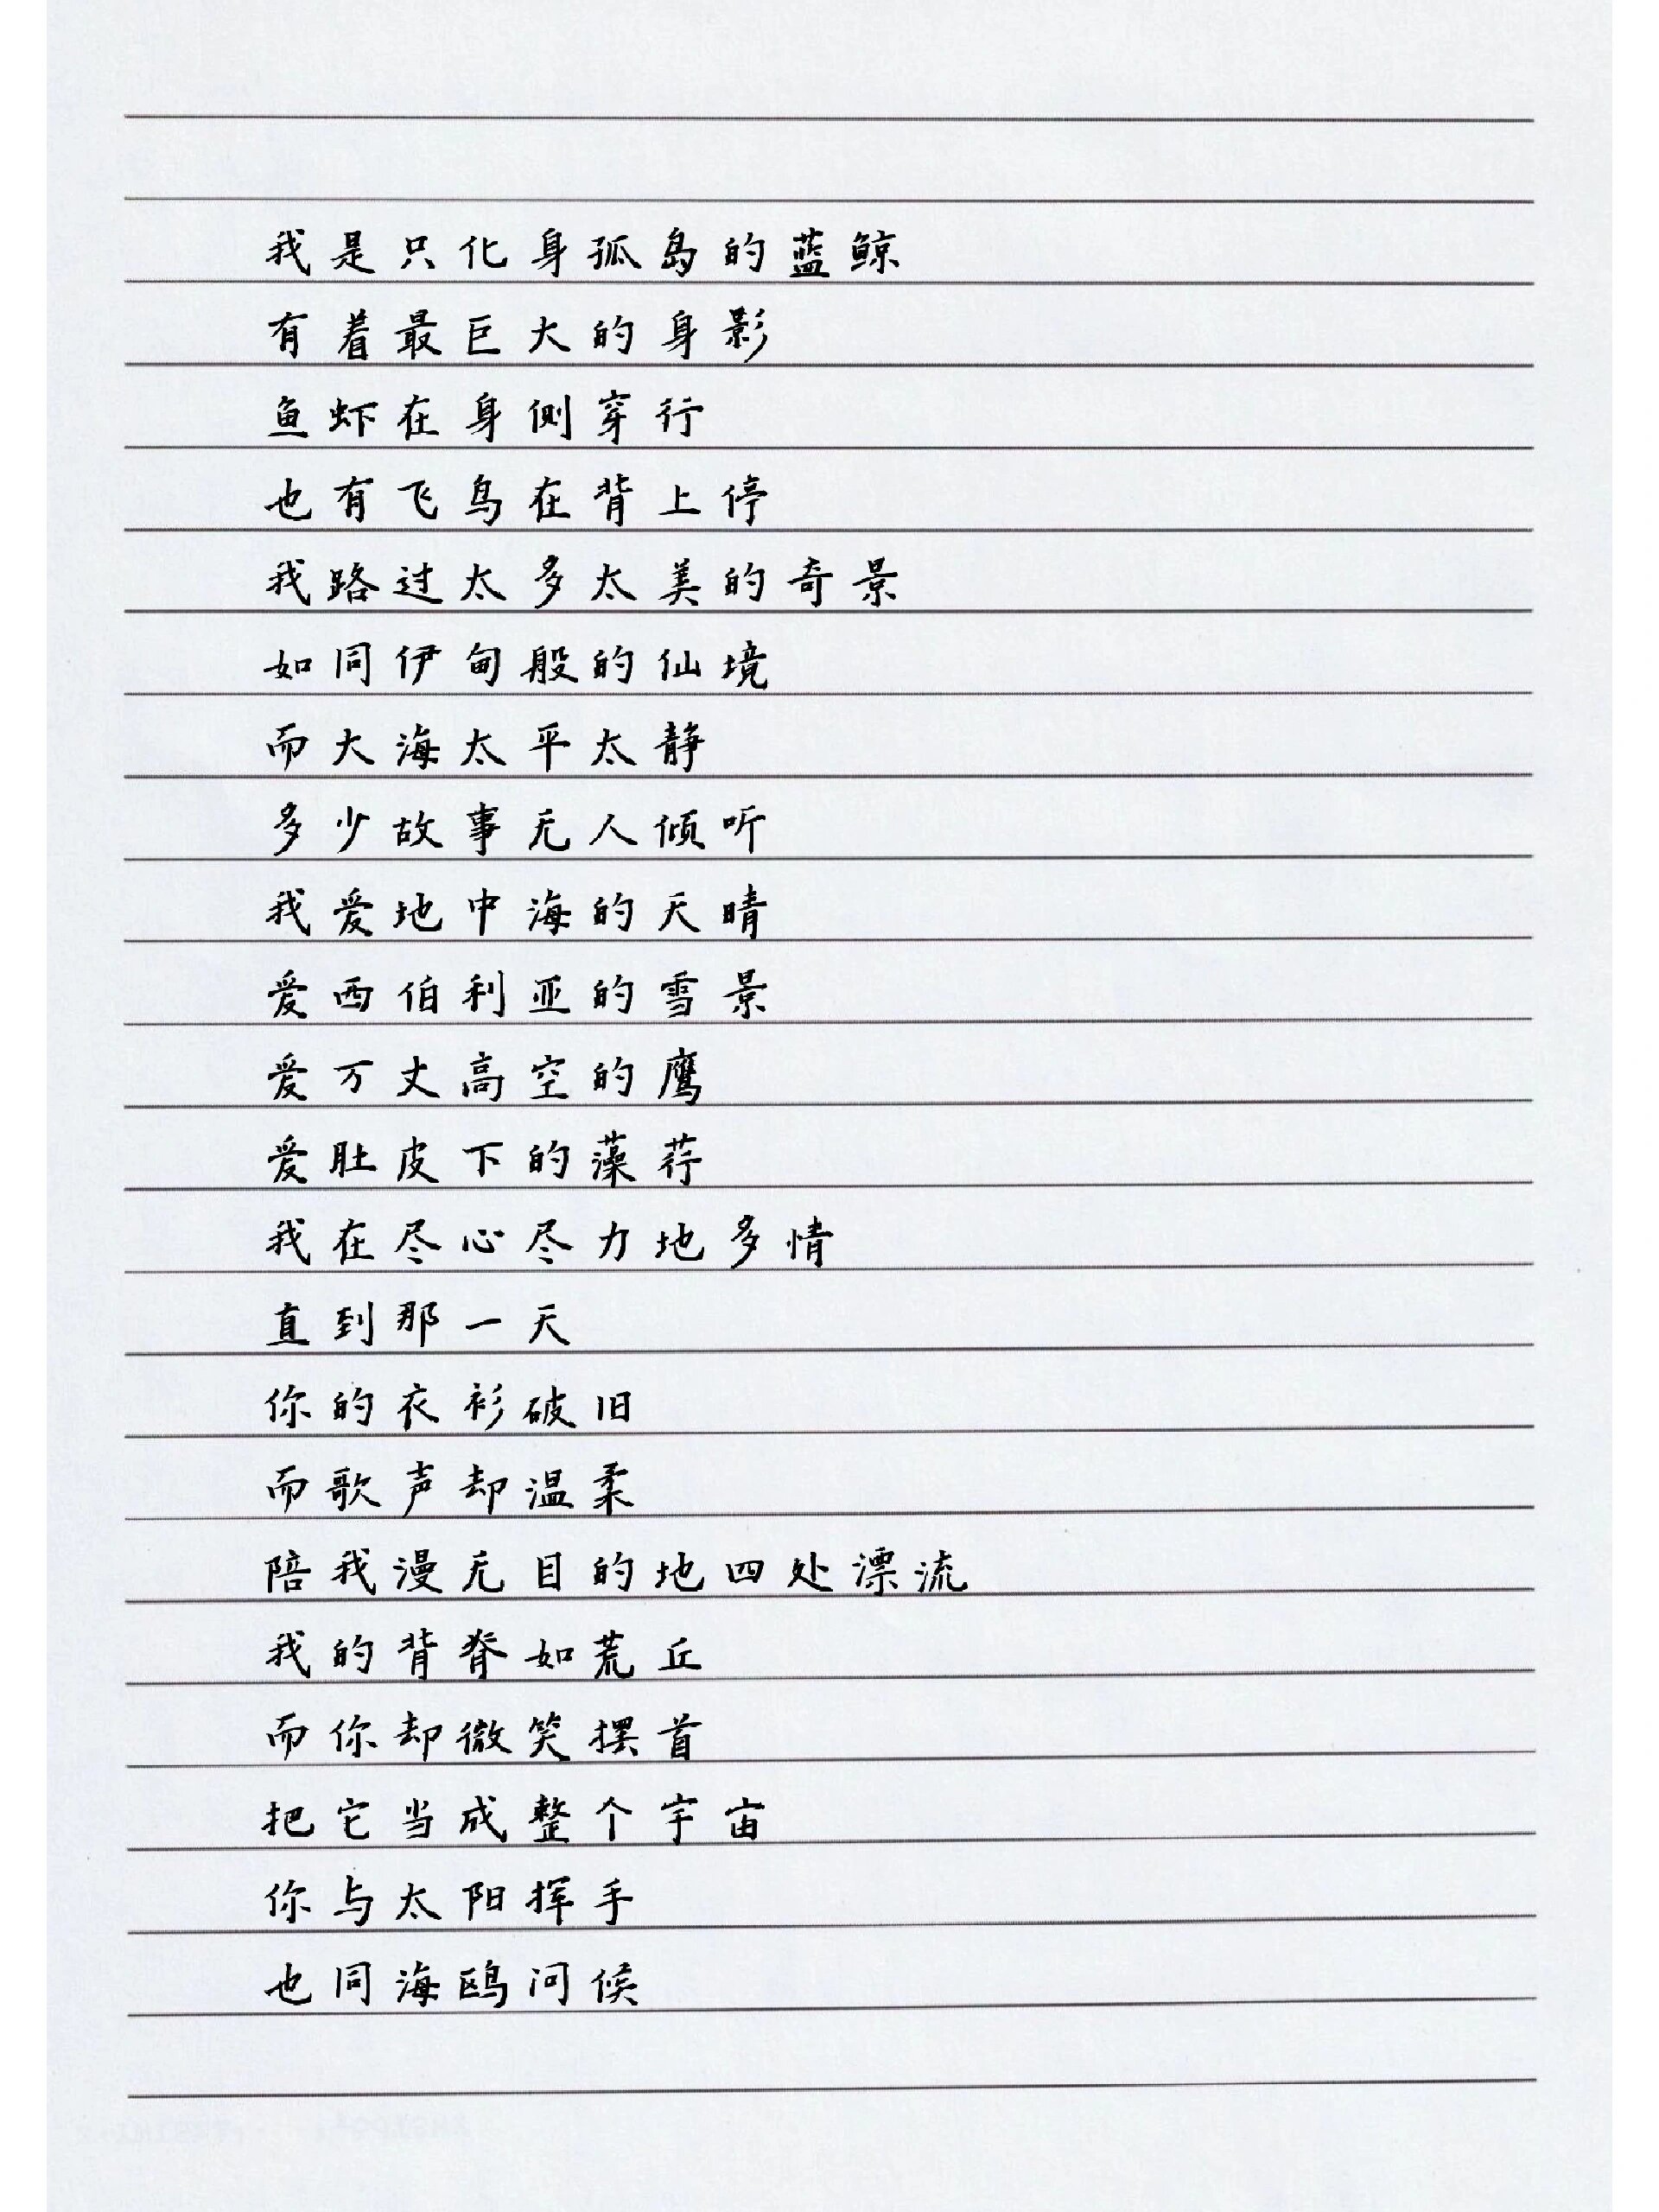 我是只化身孤岛的蓝鲸
有着最巨大的身影
鱼虾在身侧穿行
也有飞鸟在背上停
我路过太多太美的奇景
如同伊甸般的仙境
而大海太平太静
多少故事无人倾听
我爱地中海的天晴
爱西伯利亚的雪景
爱万丈高空的鹰
爱肚皮下的藻荇
我在尽心尽力地多情
直到那一天
你的衣衫破旧
而歌声却温柔
陪我漫无目的地四处漂流
我的背脊如荒丘
而你却微笑摆首
把它当成整个宇宙
你与太阳挥手
也同海鸥问候